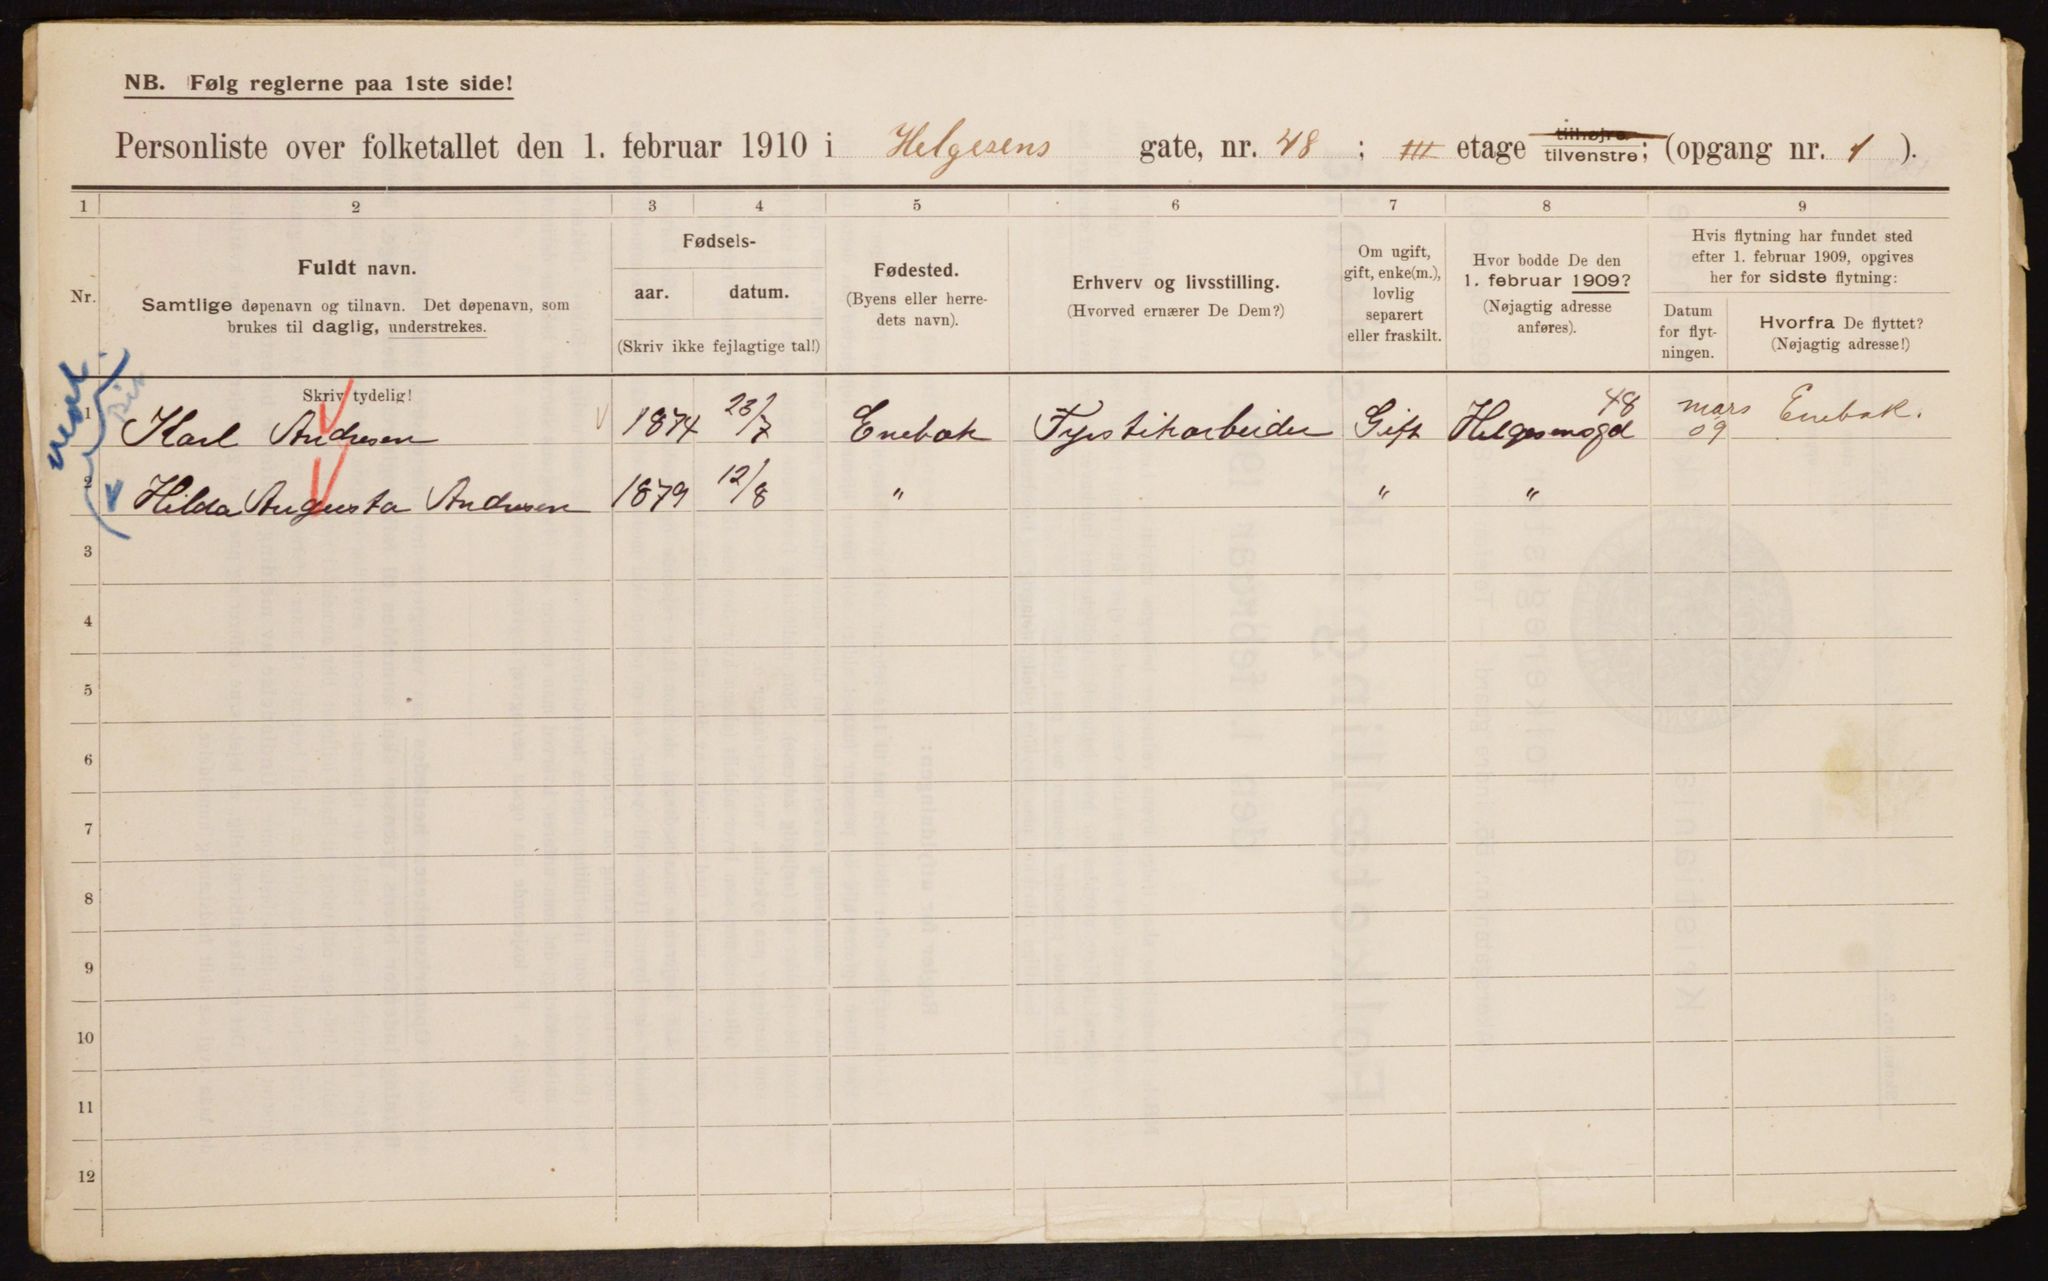 NB. Følg reglerne paa 1ste side!
Personliste over folketallet den 1. februar 1910 i Helgesens gate, nr. 48 ; III etage tilhøjre tilvenstre; (opgang nr. 1 ).
1 2 3 4 5 6 7 8 9
Nr.
Fuldt navn.
Samtlige døpenavn og tilnavn. Det døpenavn, som
brukes til daglig, understrekes.
Fødsels-
aar. datum.
(Skriv ikke fejlagtige tal!)
Fødested.
(Byens eller herre-
dets navn).
Erhverv og livsstilling.
(Hvorved ernærer De Dem?)
Om ugift,
gift, enke(m.),
lovlig
separert
eller fraskilt.
Hvor bodde De den
1. februar 1909?
(Nøjagtig adresse
anføres).
Hvis flytning har fundet sted
efter 1. februar 1909, opgives
her for sidste flytning:
Datum
for flyt-
ningen.
Hvorfra De flyttet?
(Nøjagtig adresse!)
Skriv tydelig!
1 Karl Andresen 1874 23/7 Enebak Fyrstikarbeider Gift Helgesensgd 48 mars 09 Enebak.
2 Hilda Augusta Andresen 1879 12/8 " " "
3
4
5
6
7
8
9
10
11
12